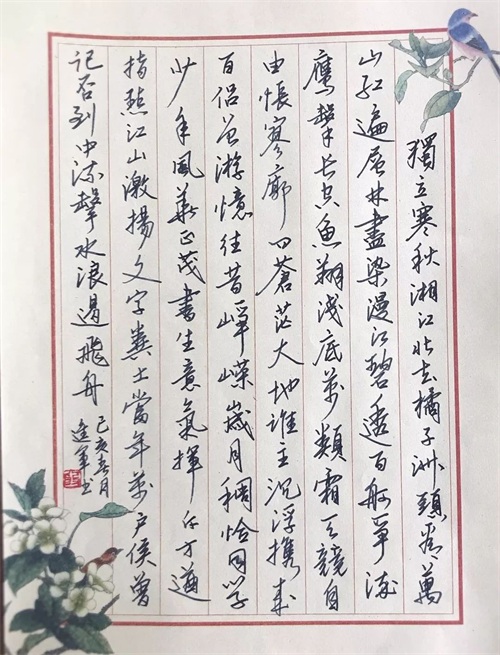 獨立寒秋湘江北去橘子洲頭看萬
山紅遍層林盡染漫江碧透百舸爭流
鷹擊长空魚翔浅底萬類霜天競自
由悵寥廓问蒼茫大地谁主沉浮携来
百侣曾游憶往昔崢嶸歲月稠恰同学
少年風華正茂書生意氣揮斥方遒
指點江山激揚文字糞土當年萬户侯曾
記否到中流擊水浪遏飛舟
己亥春月
進軍书